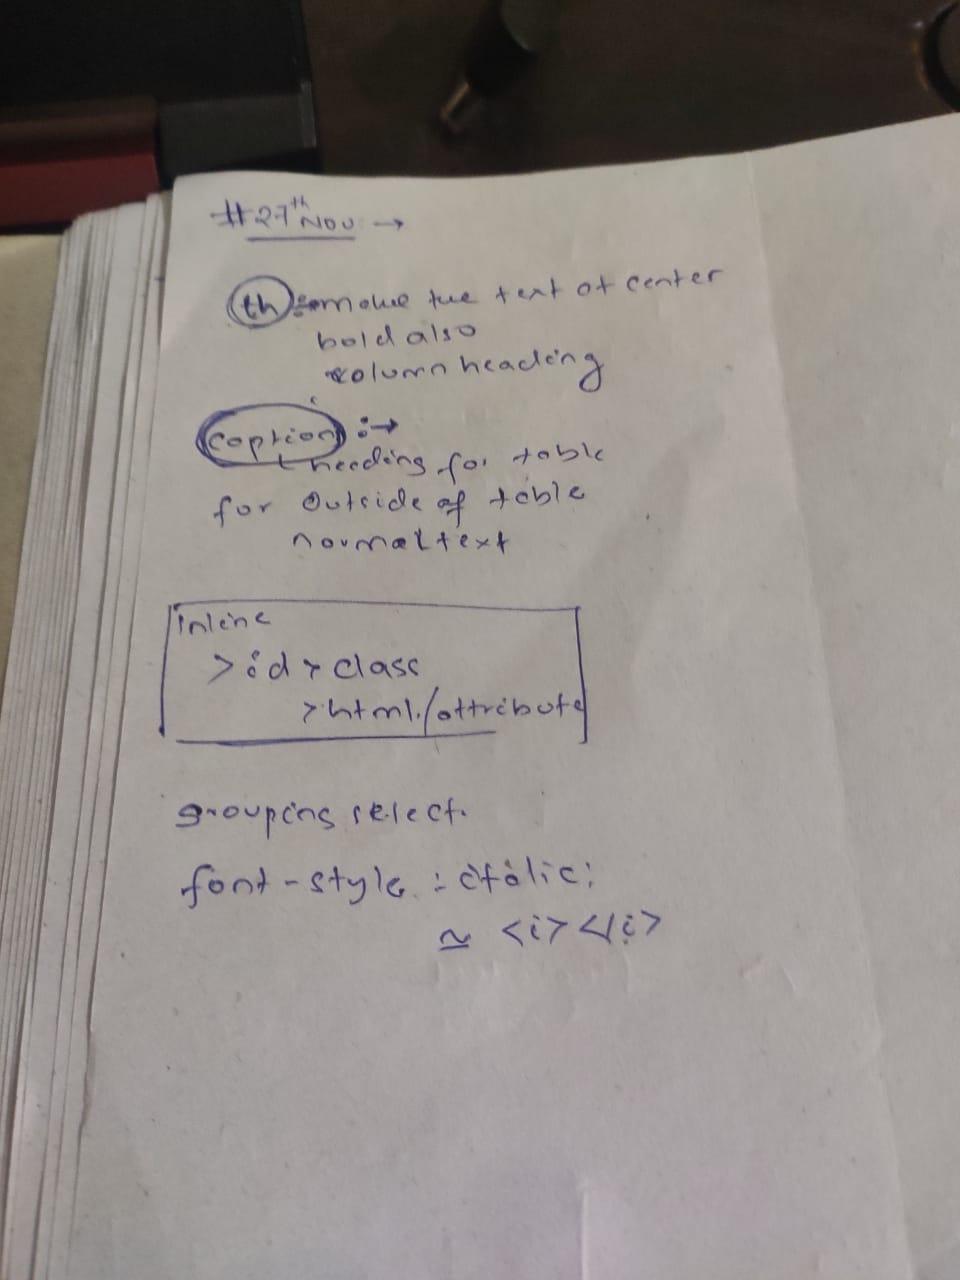 #27th Nov →
th :→ make the text at center
bold also
column heading
caption :→
heading for table
for outside of table
normal text
inline
> id > class
> html/attribute
grouping select.
font-style : italic;
≃ <i></i>